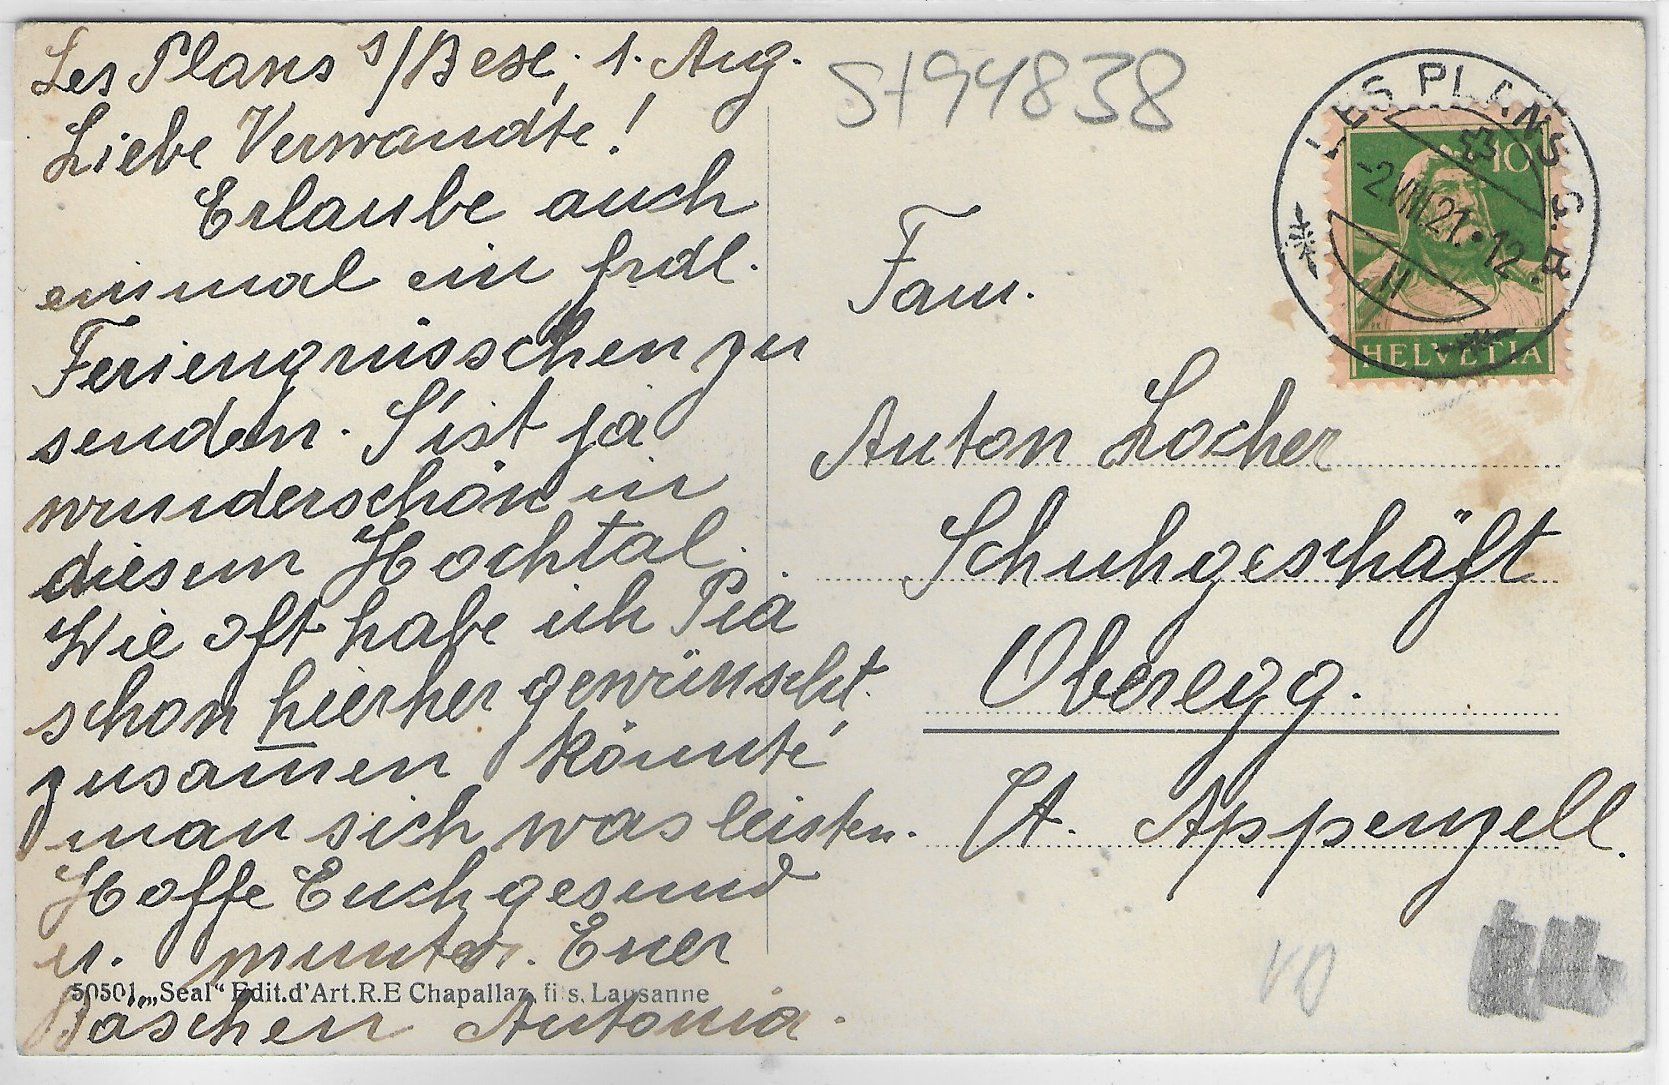 Les Plans s/Bex, 1. Aug.
Liebe Verwandte!
Erlaube auch
einmal ein frdl.
Feriengrüsschen zu
senden. S'ist ja
wunderschön in
diesem Hochtal.
Wie oft habe ich Pia
schon hierher gewünscht.
zusamen könnte
man sich was leisten.
Hoffe Euch gesund
u. munter. Euer
Bäschen Antonia.
50501 „Seal“ Edit.d'Art.R.E Chapallaz, fils, Lausanne
St94838
LES PLANS S. B.
-2.VIII.21.•12
H
10
HELVETIA
Fam.
Anton Locher
Schuhgeschäft
Oberegg.
Ct. Appenzell.